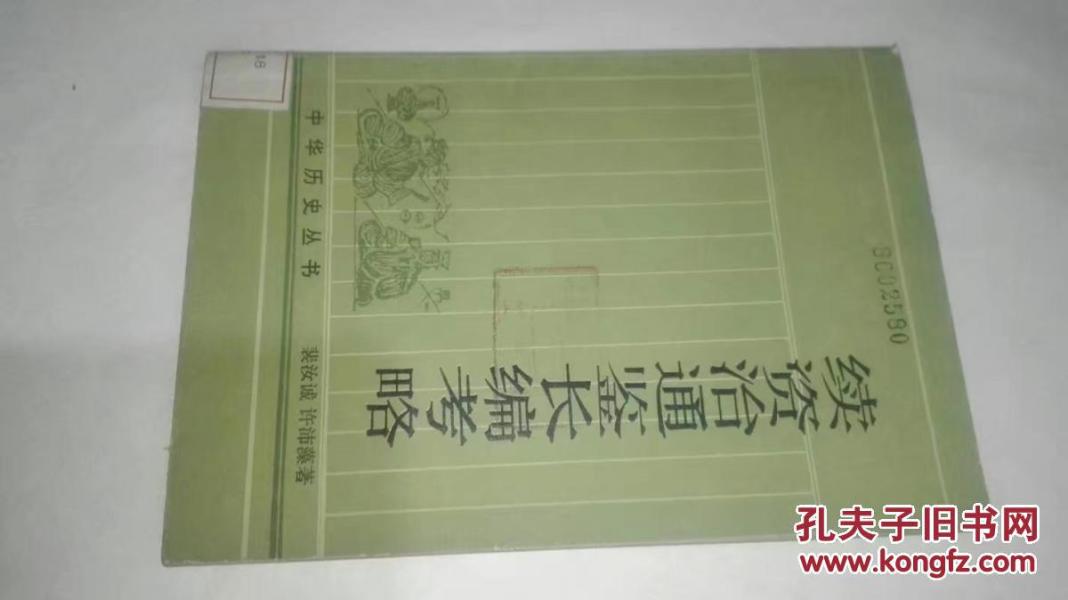 续
资治通鉴长编考略
中华历史丛书
裴汝诚 许沛藻著
8002580
18
孔夫子旧书网
www.kongfz.com